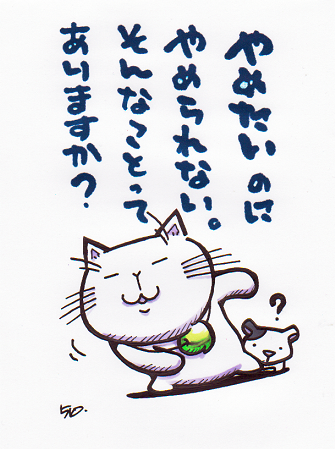 やめたいのに
やめられない。
そんなことって
ありますか?
?